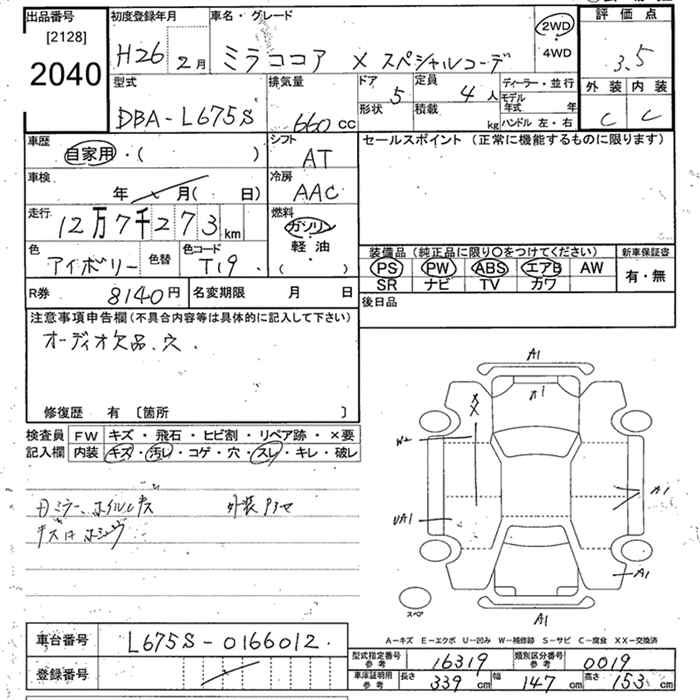 出品番号
[2128]
2040
初度登録年月
H26 2月
車名・グレード
ミラココア X スペシャルコーデ
2WD
・
4WD
評価点
3.5
外装 内装
C C
型式
DBA-L675S
排気量
660 cc
ドア 5
形状
定員 4人
積載 kg
ディーラー・並行
モデル年式 年
ハンドル 左・右
車歴
自家用・( )
シフト
AT
セールスポイント (正常に機能するものに限ります)
車検
年 月( 日)
冷房
AAC
走行
12万7千273km
燃料
ガソリン
軽油・
( )
色
アイボリー
色替
色コード
T19
装備品(純正品に限り○をつけてください)
PS PW ABS エアB AW
SR ナビ TV カワ
新車保証書
有・無
R券 8140円
名変期限 月 日
後日品
注意事項申告欄(不具合内容等は具体的に記入して下さい)
オーディオ欠品.穴.
修復歴 有 〔箇所 〕
検査員
記入欄
FW キズ・飛石・ヒビ割・リペア跡・×要
内装 キズ・汚レ・コゲ・穴・スレ・キレ・破レ
A1
A1
XX
W2
UA1
A1
A1
A1
スペア
A-キズ E-エクボ U-凹み W-補修跡 S-サビ C-腐食 XX-交換済
車台番号 L675S-0166012.
登録番号
型式指定番号
参考
16319
類別区分番号
参考
0019
車庫証明用
参考
長さ 339cm 幅 147cm 高さ 153cm